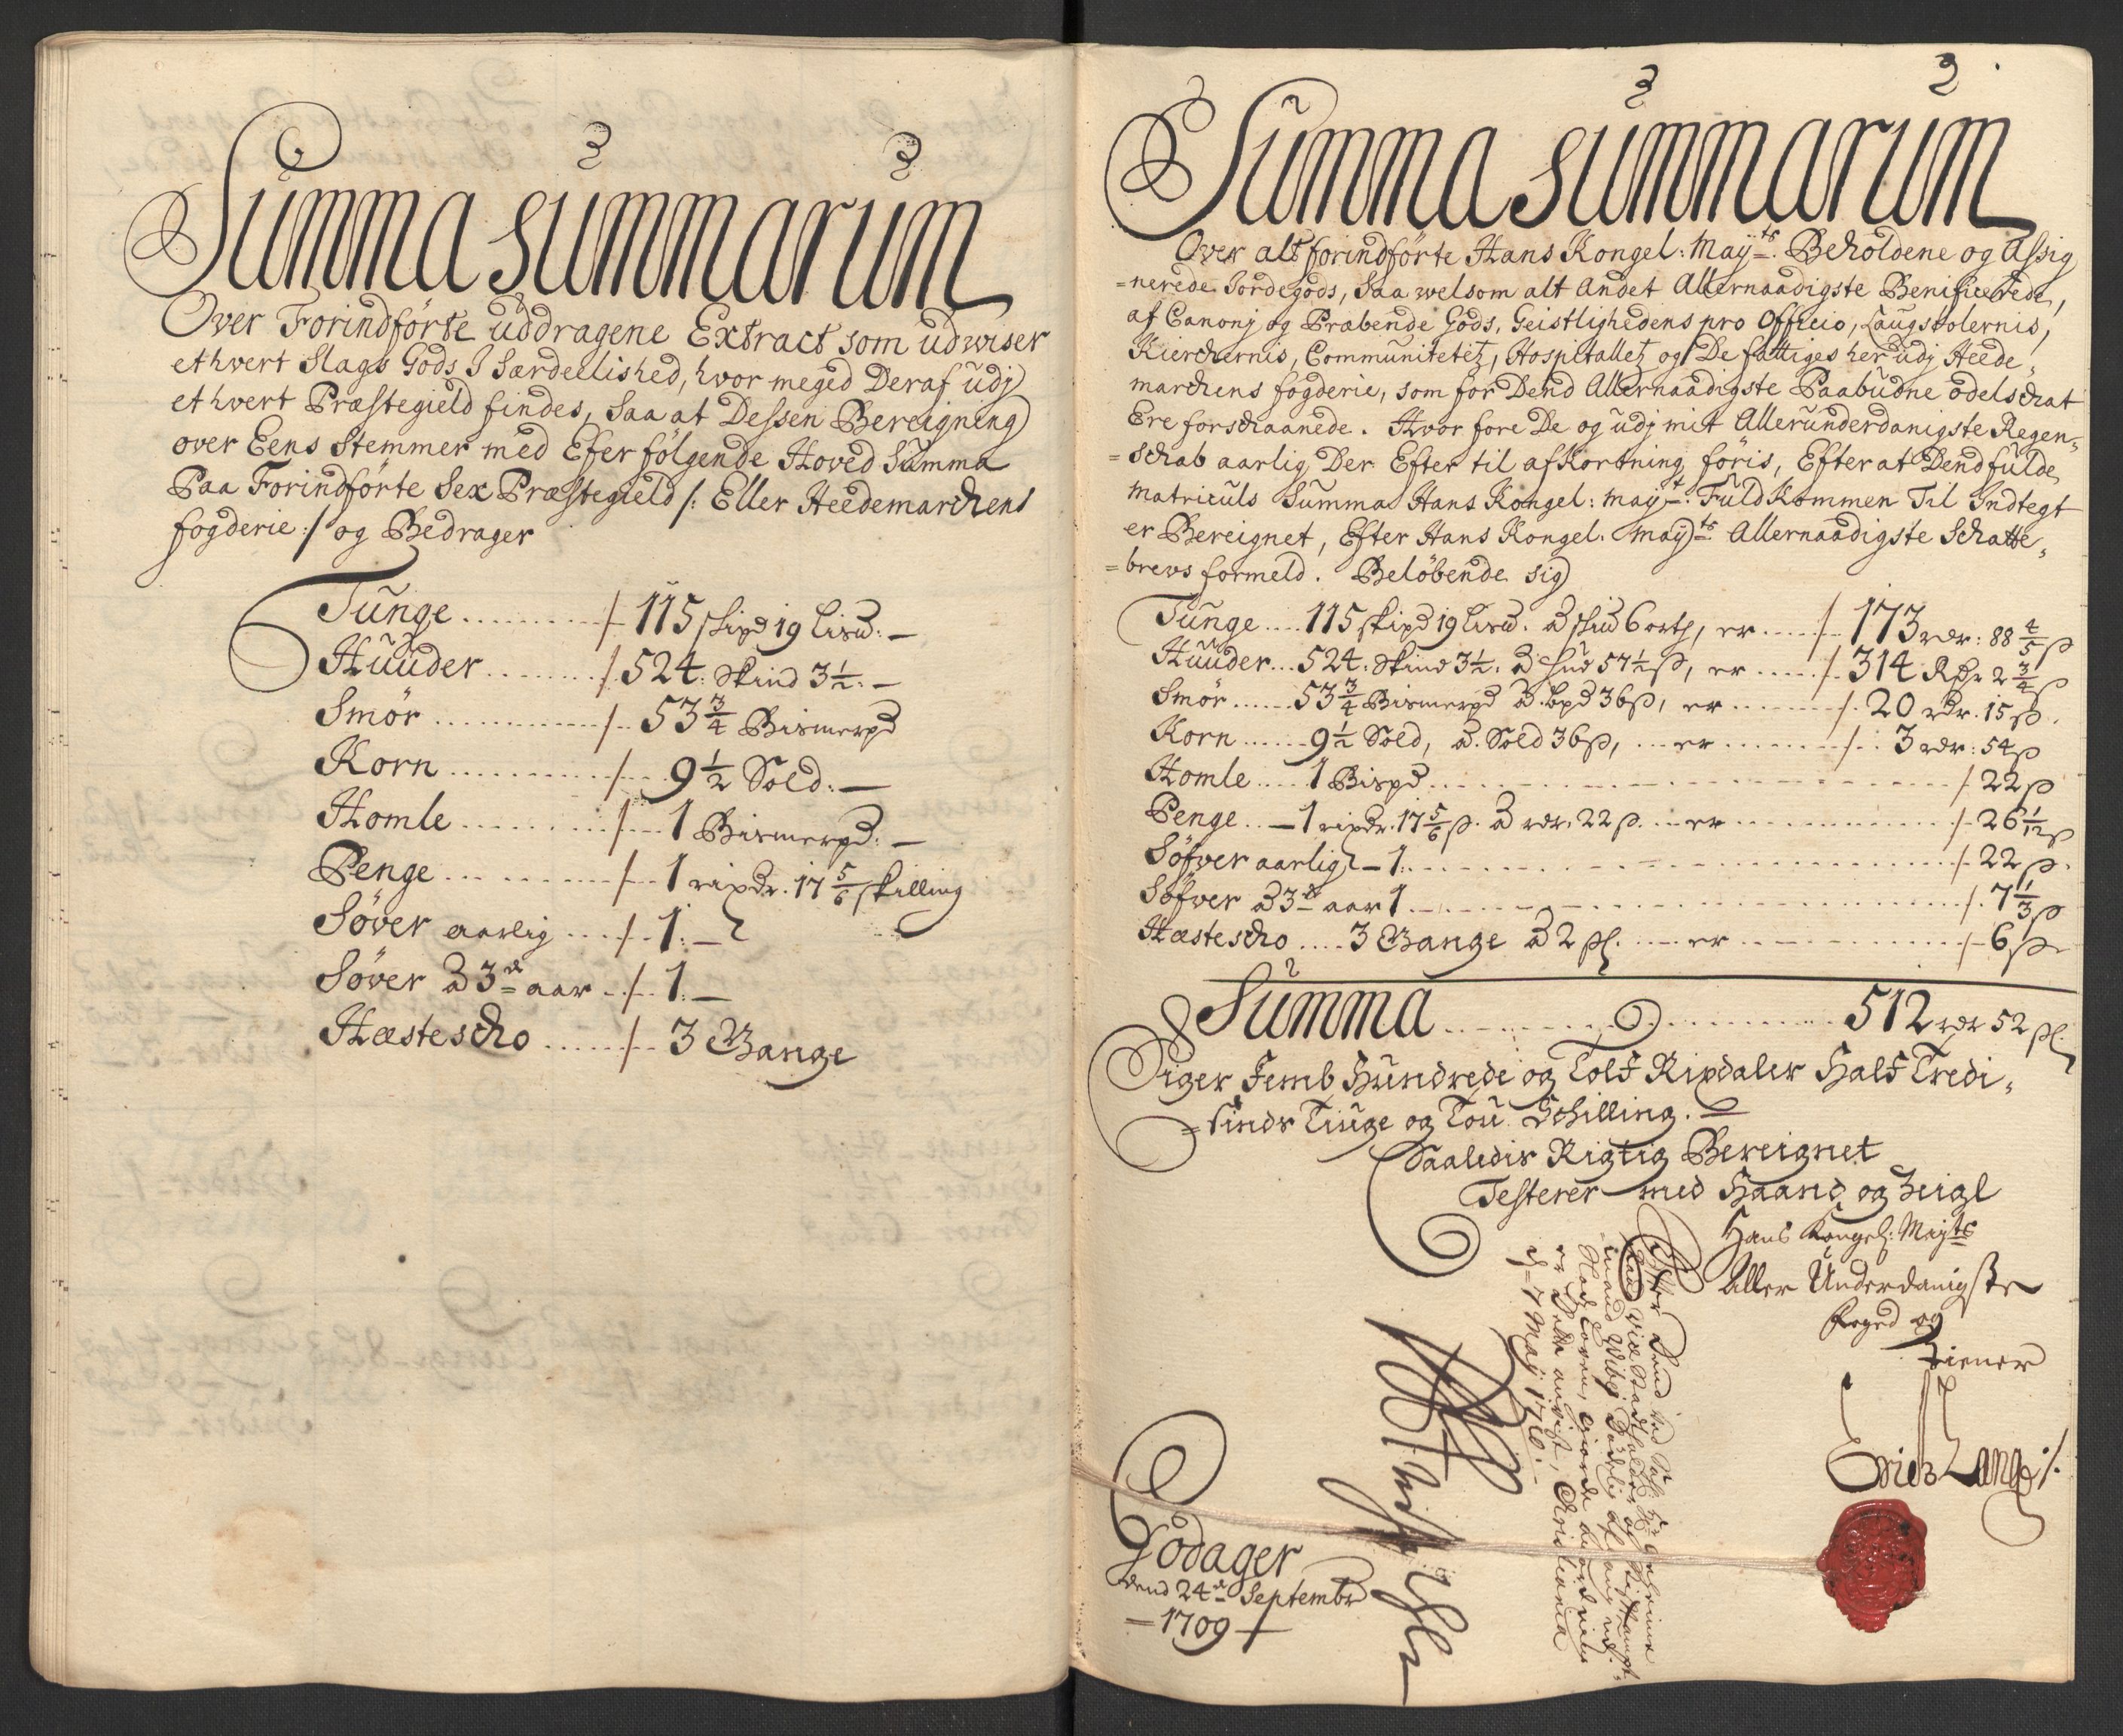 Summa summarum
Over Forindförte uddragene Extract som udwiser
ethvert Slags Gods I Særdeelished, hvor meged Deraf udj
ethvert Præstegield findes, Saa at Dessen Bereigning
over Eens Stemmer med Efter fölgende Hoved Summa
Paa Forindförte Sex Præstegield /: Eller Heedemarchens
fogderie :/ og Bedrager
Tunge ......... /. 115 skipd 19 lisu: —
Huuder ........ /. 524: Skind 3½: —
Smör .......... /. 53¾ Bismerpd
Korn .......... /. 9½ Sold: —
Homle ......... /. 1 Bismerpd: —
Penge ......... /. 1 rixdr. 17 5/6 skilling
Söver aarlig ... /. 1: —
Söver à 3de aar ../. 1: —
Hæstescho ...... /. 3 Gange
Summa summarum
Over alt forindförte Hans Kongel: Mayts: Beholdene og Assig
=nerede Jordegods, Saa welsom alt Andet Allernaadigste Benificerede,
af Canonj og Præbende Gods, Geistlighedens pro Officio, Laugstolernis,
Kierchernis, Communitetetz, Hospitalletz og De fattiges her udj Heede,
marchens fogderie, som for Dend Allernaadigste Paabudne odelschat
Ere forschaanede. Hvor fore De og udj mit Allerunderdanigste Regen=
=schab aarlig Der Efter til afkortning föris, Efter at Dend fulde
Matriculs Summa Hans Kongel: Mayt: Fuldkommen Til Indtegt
er Bereignet, Efter Hans Kongel. Mayts Allernaadigste Schatte,
=brevs formeld. Belöbende sig
Tunge .... 115 skipd 19 lisu. à skud 6 ort, er ..... /. 173 rdr: 88 4/5 ß
Huuder ... 524: Skind 3½. à hud 57½ ß, er ..... /. 314 Rdr 2 3/4 ß
Smör ...... 53¾ Bismerpd à bpd 36 ß, er ....... /. 20 rdr. 15 ß.
Korn ...... 9½ Sold, à Sold 36 ß, ... er ....... /. 3 rdr: 54 ß
Homle .... 1 Bispd ........ /. 22 ß
Penge ... 1 rixdr. 17 5/6 ß. à rdr. 22 ß. ... er ........ /. 26 1/12 ß
Söfver aarlig — 1: ........ /. 22 ß.
Söfver à 3de aar 1 ........ /. 7 1/3 ß
Hæstescho .... 3 Gange à 2 ßl. ... er ........ /. 6 ß
Summa ........ 512 rdr 52 ßl.
Siger Femb Hundrede og Tolf Rixdaler Half Tredi,
=sinds Tiuge og Tou Schilling. —
Saaledis Rigtig Bereignet
Testerer med Haand og Zeigl
Hans Kongel: Mayts
Aller Underdanigste
Foged og
Tiener
Erich Lange /.
Godager
dend 24de Septembr
— 1709 —
Efter Dend
Vice Stadtholder og
er Dette anvist, Christiania
d = 7 Maij 1710. —